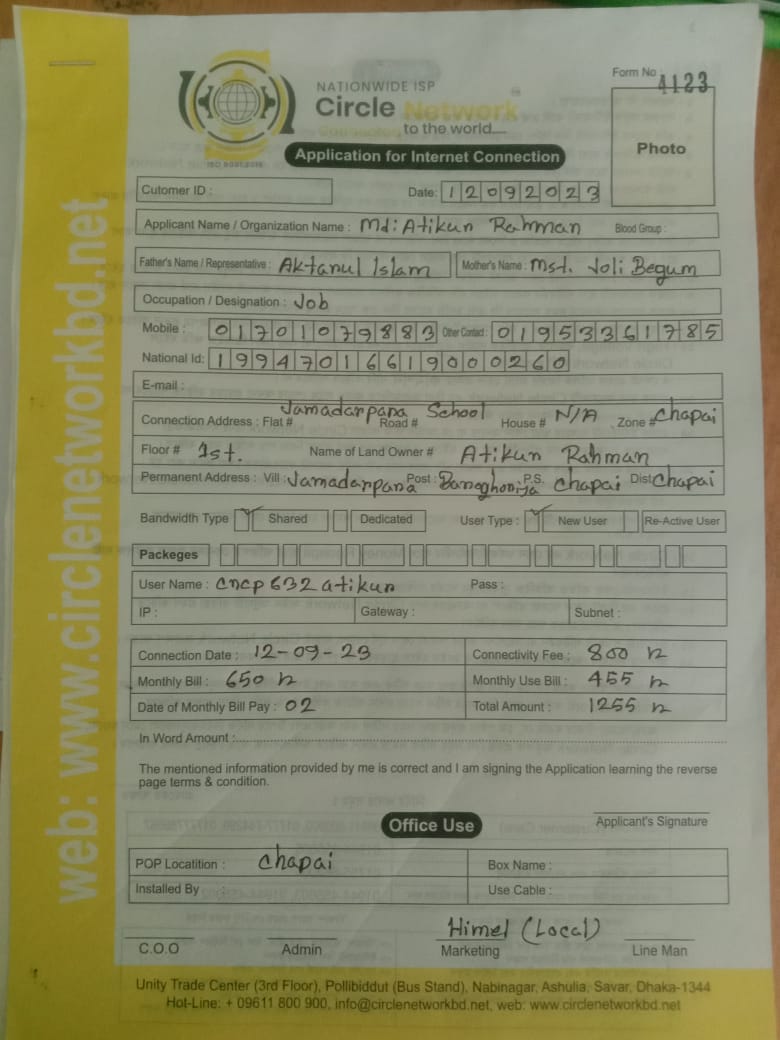 Form No 4123
NATIONWIDE ISP
Circle Network
Connecting to the world....
ISO 9001:2015
Photo
Application for Internet Connection
Cutomer ID :
Date: 12092023
Applicant Name / Organization Name : Md: Atikun Rahman Blood Group :
Father's Name / Representative : Aktanul Islam Mother's Name : Mst. Joli Begum
Occupation / Designation : Job
Mobile : 01701079883 Other Contact : 01953361785
National Id: 19947016619000260
E-mail :
Connection Address : Flat # Jamadarpana School Road # House # N/A Zone # Chapai
Floor # 1st. Name of Land Owner # Atikun Rahman
Permanent Address : Vill : Jamadarpana Post : P.S. Chapai Dist: Chapai
Bandwidth Type Shared Dedicated User Type : New User Re-Active User
Packeges
User Name : cncp632atikun Pass :
IP : Gateway : Subnet :
Connection Date : 12-09-23 Connectivity Fee : 800
Monthly Bill : 650 Monthly Use Bill : 455
Date of Monthly Bill Pay : 02 Total Amount : 1255
In Word Amount :
The mentioned information provided by me is correct and I am signing the Application learning the reverse
page terms & condition.
Applicant's Signature
Office Use
POP Locatition : Chapai Box Name :
Installed By : Use Cable :
Himel (Local)
C.O.O Admin Marketing Line Man
Unity Trade Center (3rd Floor), Pollibiddut (Bus Stand), Nabinagar, Ashulia, Savar, Dhaka-1344
Hot-Line: + 09611 800 900, info@circlenetworkbd.net, web: www.circlenetworkbd.net
web: www.circlenetworkbd.net